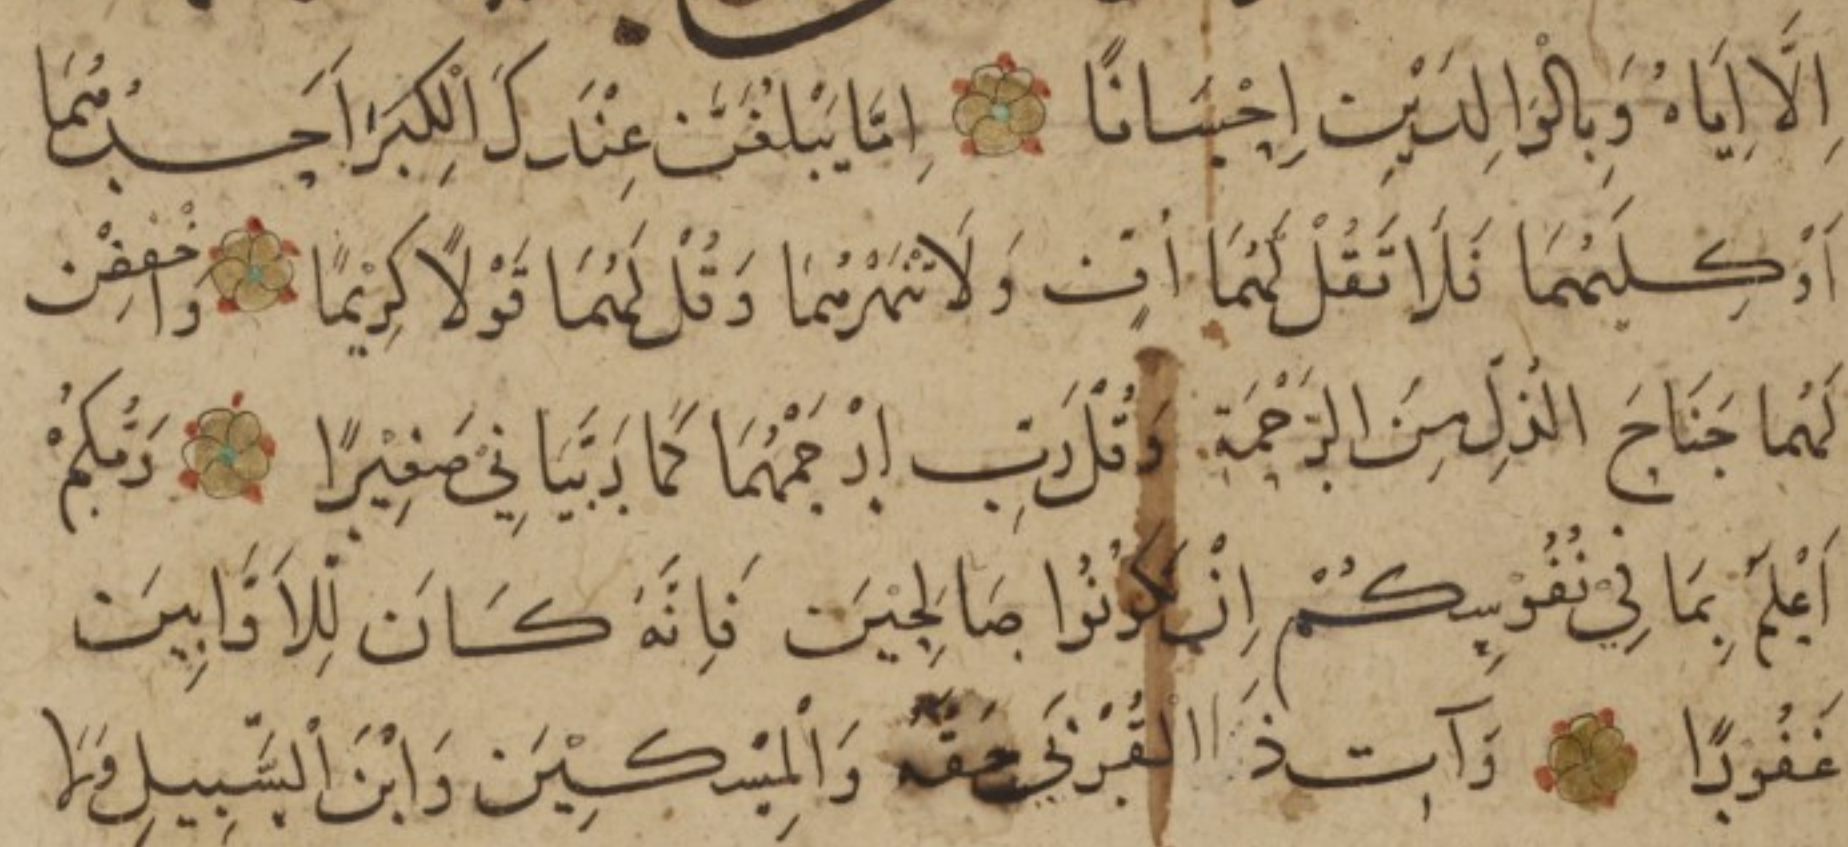 اِلَّا اِيَاهُ وَبِالْوَالِدَيْنِ اِحْسَانًا اِمَّا يَبْلُغَنَّ عِنْدَكَ الْكِبَرَ اَحَدُهُمَا
اَوْ كِلَيهُمَا فَلَا تَقُلْ لَهُمَا اُفٍّ وَلَا تَنْهَرْهُمَا وَقُلْ لَهُمَا قَوْلًا كَرِيْمًا وَاخْفِضْ
لَهُمَا جَنَاحَ الذُلِّ مِنَ الرَّحْمَةِ وَقُلْ رَبِّ ارْحَمْهُمَا كَمَا رَبَّيَانِيْ صَغِيْرًا رَبُّكُمْ
اَعْلَمُ بِمَا فِيْ نُفُوْسِكُمْ اِنْ تَكُوْنُوا صَالِحِيْنَ فَاِنَّهُ كَانَ لِلْاَوَّابِينَ
غَفُورًا وَآتِ ذَا الْقُرْبَى حَقَّهُ وَالْمِسْكِيْنَ وَابْنَ الْسَّبِيلِ وَلَا